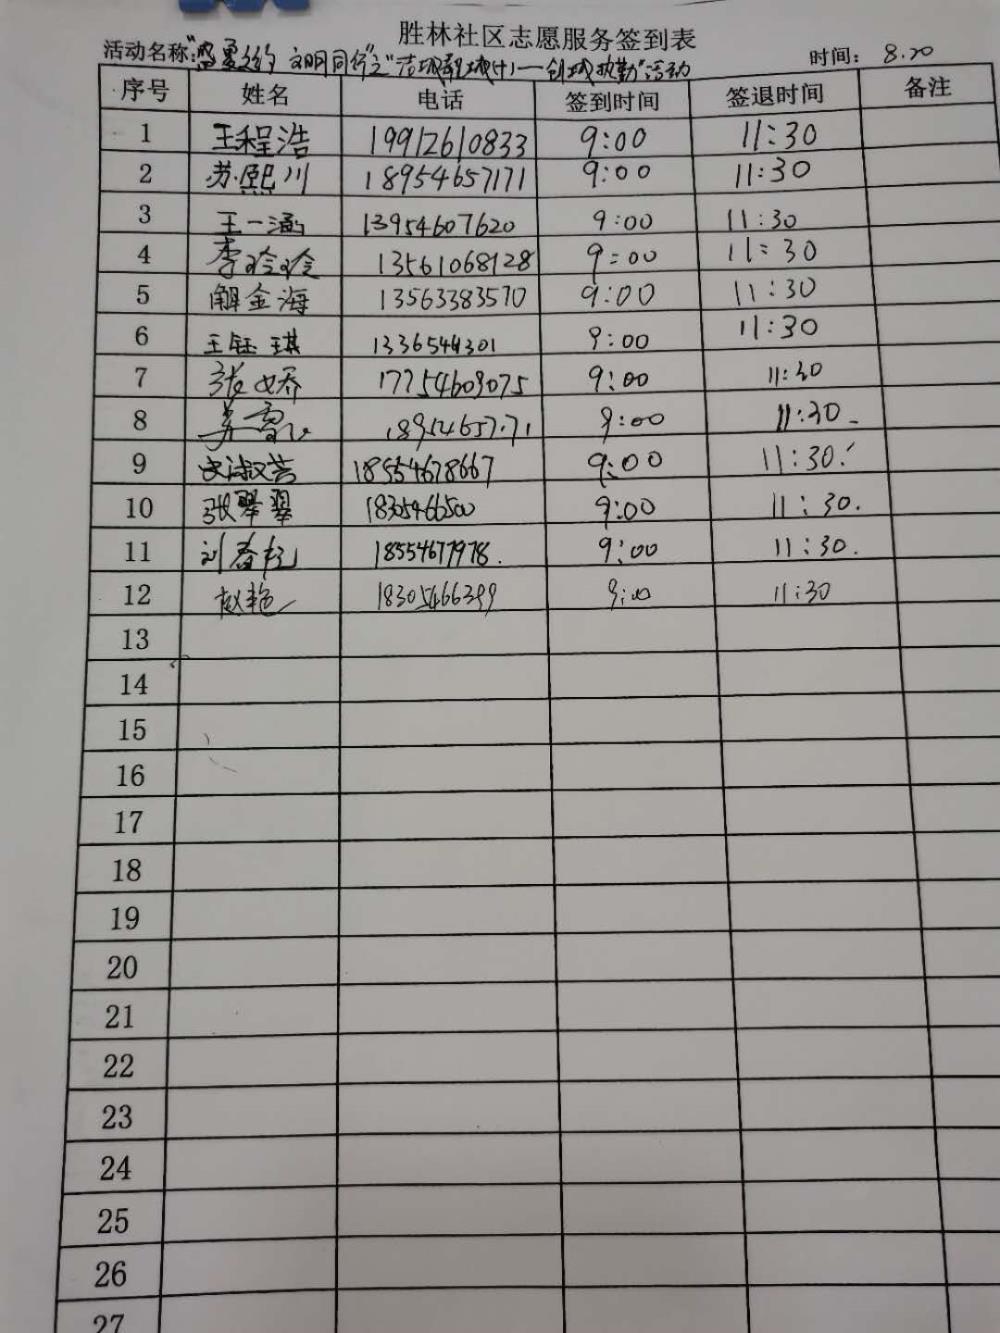 胜林社区志愿服务签到表
活动名称: 文明同行"之" 创城执勤"活动 时间: 8.20
序号 姓名 电话 签到时间 签退时间 备注
1 王程浩 19912610833 9:00 11:30
2 苏熙川 18954657171 9:00 11:30
3 王一涵 13954607620 9:00 11:30
4 李玲玲 13561068128 9:00 11:30
5 解金海 13563383570 9:00 11:30
6 王钰琪 1336544301 9:00 11:30
7 张女乔 17754609075 9:00 11:30
8 9:00 11:30.
9 18554678667 9:00 11:30.
10 张翠翠 18305466500 9:00 11:30.
11 刘春 18554677978. 9:00 11:30.
12 赵艳 18305466399 9:00 11:30
13
14
15
16
17
18
19
20
21
22
23
24
25
26
27